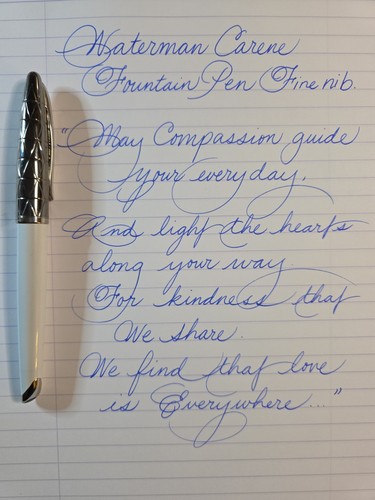 Waterman Carene
Fountain Pen Fine nib.
"May Compassion guide
your everyday.
And light the hearts
along your way
For kindness that
We share.
We find that love
is Everywhere..."